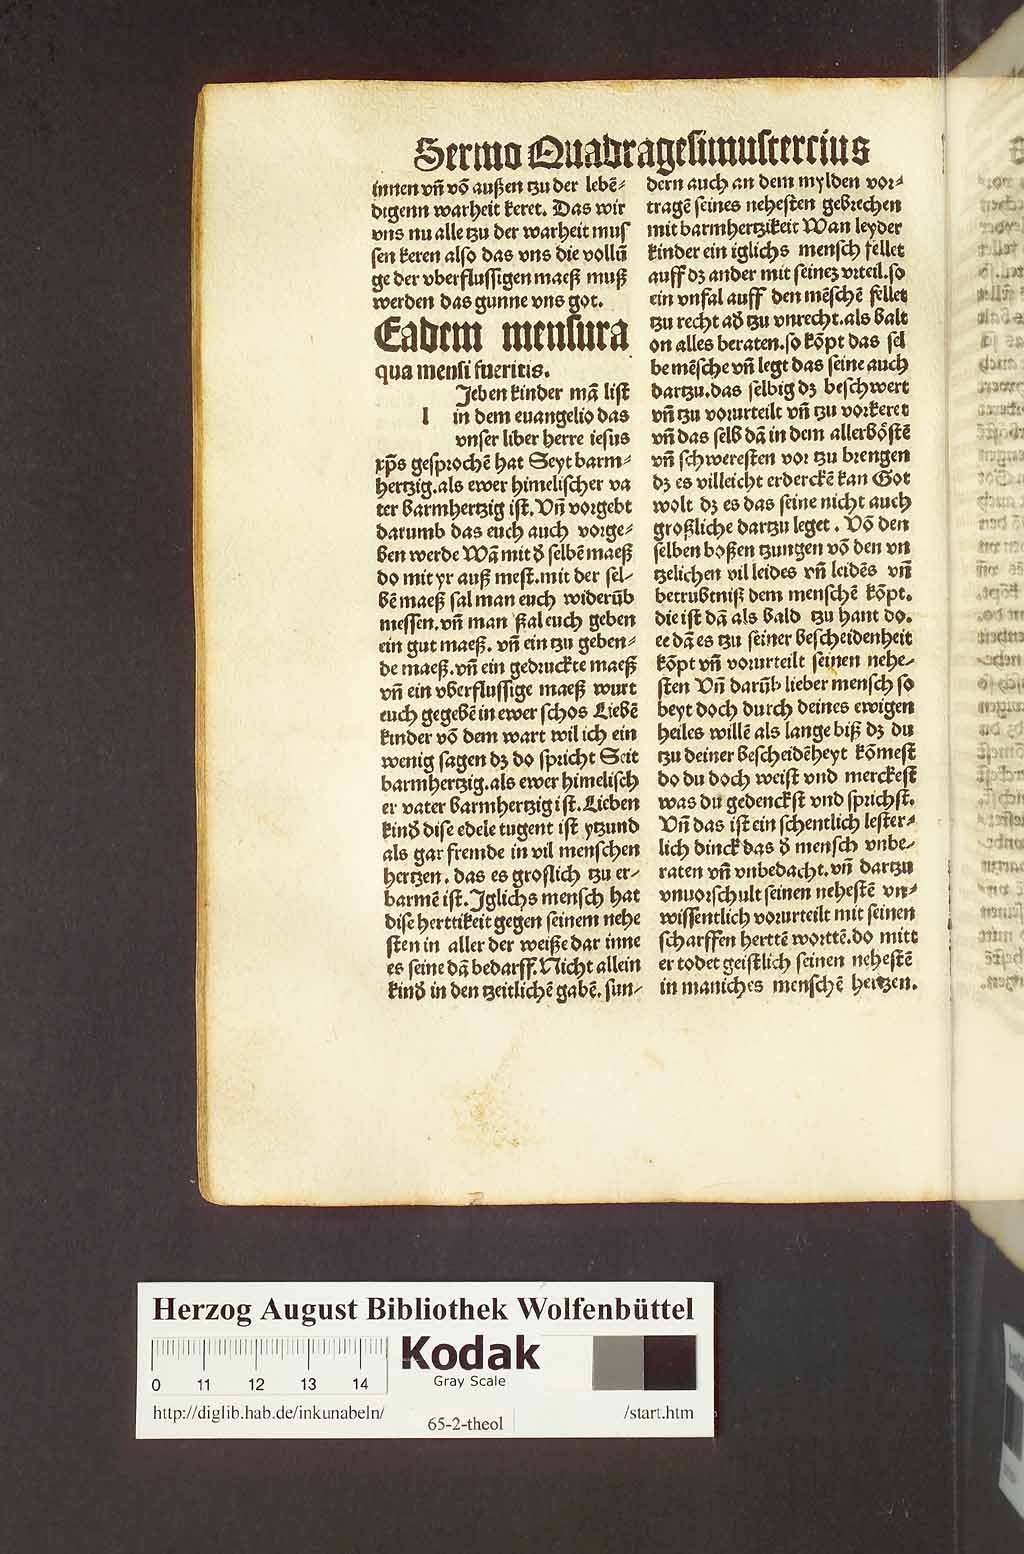 Sermo Quadragesimustercius
innen vñ võ außen tzu der lebẽ-
digenn warheit keret. Das wir
vns nu alle tzu der warheit mus
sen keren also das vns die vollũ
ge der vberflussigen maeß muß
werden das gunne vns got.
Eadem mensura
qua mensi fueritis.
Jeben kinder mã list
l in dem euangelio das
vnser liber herre iesus
xp̃s gesprochẽ hat Seyt barm-
hertzig.als ewer himelischer va
ter barmhertzig ist. Vñ vorgebt
darumb das euch auch vorge-
ben werde Wã mit d̕ selbẽ maeß
do mit yr auß mest.mit der sel-
bẽ maeß sal man euch widerũb
messen.vñ man ßal euch geben
ein gut maeß. vñ ein tzu geben-
de maeß.vñ ein gedruckte maeß
vñ ein vberflussige maeß wurt
euch gegebẽ in ewer schos Liebẽ
kinder võ dem wart wil ich ein
wenig sagen dz do spricht Seit
barmhertzig.als ewer himelisch
er vater barmhertzig ist. Lieben
kind̕ dise edele tugent ist ytzund
als gar fremde in vil menschen
hertzen. das es groslich tzu er-
barmẽ ist. Jglichs mensch hat
dise herttikeit gegen seinem nehe
sten in aller der weiße dar inne
es seine dã bedarff. Nicht allein
kind̕ in den tzeitlichẽ gabẽ. sun-
dern auch an dem mylden vor-
tragẽ seines nehesten gebrechen
mit barmhertzikeit Wan leyder
kinder ein iglichs mensch fellet
auff dz ander mit seinez vrteil.so
ein vnfal auff den mẽschẽ fellet
tzu recht ad̕ tzu vnrecht.als balt
on alles beraten.so kõpt das sel
be mẽsche vñ legt das seine auch
dartzu.das selbig dz beschwert
vñ tzu vorurteilt vñ tzu vorkeret
vñ das selb dã in dem allerböstẽ
vñ schweresten vor tzu brengen
dz es villeicht erderckẽ kan Got
wolt dz es das seine nicht auch
großliche dartzu leget. Võ den
selben boßen tzungen võ den vn
tzelichen vil leides vñ leidẽs vñ
betrubtniß dem menschẽ kõpt.
die ist dã als bald tzu hant do.
ee dã es tzu seiner bescheidenheit
kõpt vñ vorurteilt seinen nehe-
sten Vñ darũb lieber mensch so
beyt doch durch deines ewigen
heiles willẽ als lange biß dz du
tzu deiner bescheidẽheyt kõmest
do du doch weist vnd merckest
was du gedenckst vnd sprichst.
Vñ das ist ein schentlich lester-
lich dinck das d̕ mensch vnbe-
raten vñ vnbedacht.vñ dartzu
vnuorschult seinen nehestẽ vn-
wissentlich vorurteilt mit seinen
scharffen herttẽ worttẽ.do mitt
er todet geistlich seinen nehestẽ
in maniches menschẽ hertzen.
Herzog August Bibliothek Wolfenbüttel
0 11 12 13 14
Kodak
Gray Scale
http://diglib.hab.de/inkunabeln/
65-2-theol
/start.htm